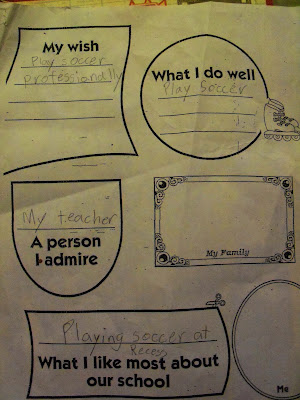 My wish
Play soccer
professionally
What I do well
Play Soccer
My teacher
A person
I admire
My Family
Playing soccer at
Recess
What I like most about
our school
Me